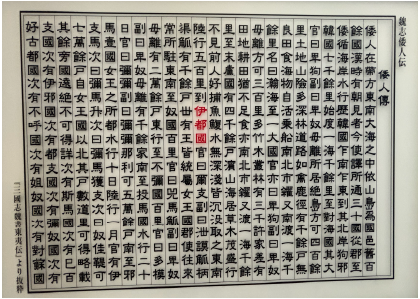 魏志倭人伝
倭人傳
倭人在帶方東南大海之中依山島爲國邑舊百
餘國漢時有朝見者今使譯所通三十國從郡至
倭循海岸水行歷韓國乍南乍東到其北岸狗邪
韓國七千餘里始度一海千餘里至對海國其大
官曰卑狗副曰卑奴母離所居絶島方可四百餘
里土地山險多深林道路如禽鹿徑有千餘戸無
良田食海物自活乗船南北市糴又南渡一海千
餘里名曰瀚海至一大國官亦曰卑狗副曰卑奴
母離方可三百里多竹木叢林有三千許家差有
田地耕田猶不足食亦南北市糴又渡一海千餘
里至末盧國有四千餘戸濱山海居草木茂盛行
不見前人好捕魚鰒水無深淺皆沉没取之東南
陸行五百里到伊都國官曰爾支副曰泄謨觚柄
渠觚有千餘戸丗有王皆統屬女王國郡使往來
常所駐東南至奴國百里官曰兕馬觚副曰卑奴
母離有二萬餘戸東行至不彌國百里官曰多模
副曰卑奴母離有千餘家南至投馬國水行二十
日官曰彌彌副曰彌彌那利可五萬餘戸南至邪
馬壹國女王之所都水行十日陸行一月官有伊
支馬次曰彌馬升次曰彌馬獲支次曰奴佳鞮可
七萬餘戸自女王國以北其戸數道里可得略載
其餘旁國遠絶不可得詳次有斯馬國次有巳百
支國次有伊邪國次有都支國次有彌奴國次有
好古都國次有不呼國次有姐奴國次有對蘇國
「三國志魏書東夷伝」より抜粋